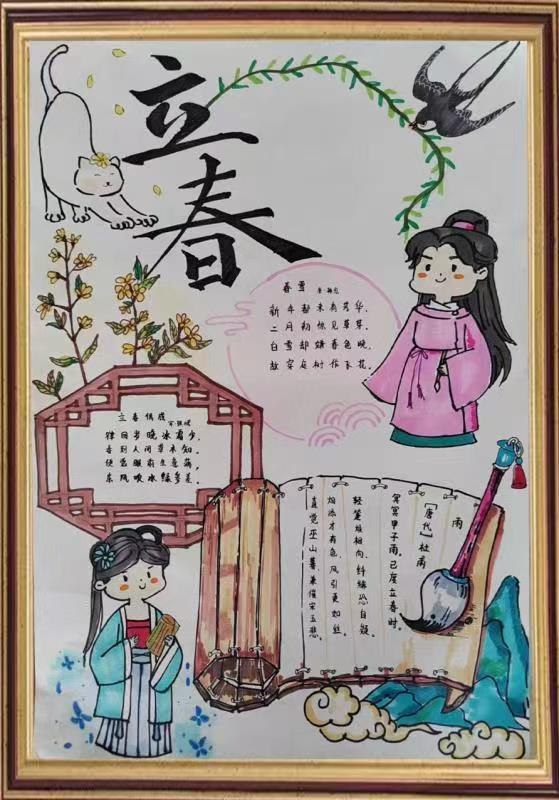 立春
春雪 唐·韩愈
新年都未有芳华,
二月初惊见草芽。
白雪却嫌春色晚,
故穿庭树作飞花。
立春偶成
宋·张栻
律回岁晚冰霜少,
春到人间草木知。
便觉眼前生意满,
东风吹水绿参差。
雨
[唐代]杜甫
冥冥甲子雨,已度立春时。
轻箑烦相向,纤絺恐自疑。
烟添才有色,风引更如丝。
直觉巫山暮,兼催宋玉悲。